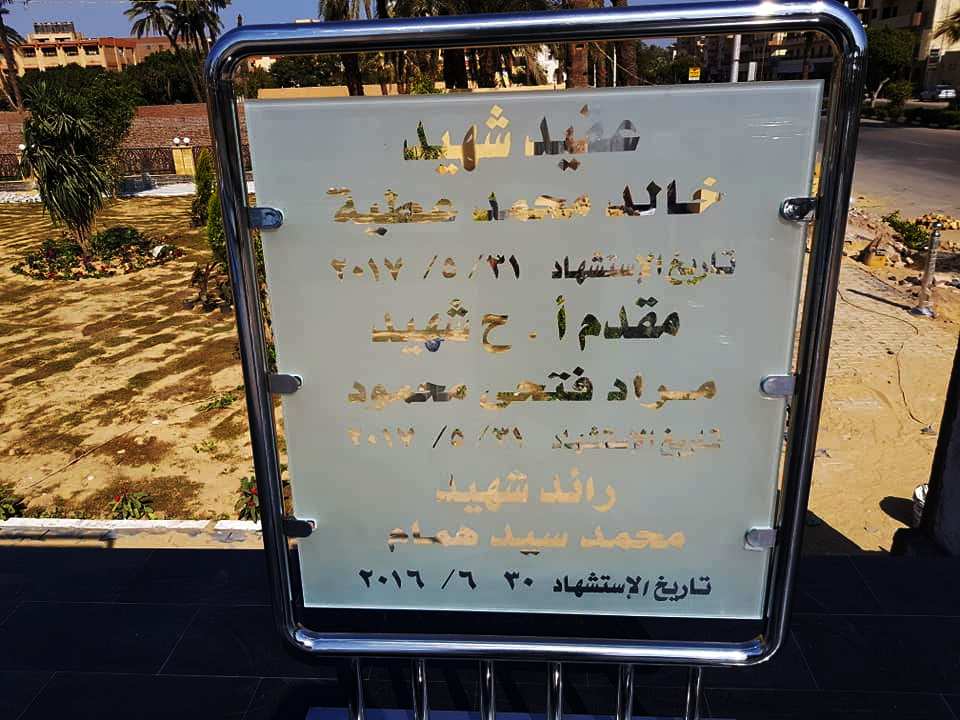 عقيد شهيد
خالد محمد عطية
تاريخ الإستشهاد ٣١ /٥ /٢٠١٧
مقدم أ . ح شهيد
مراد فتحى محمود
تاريخ الإستشهاد ٣١/ ٥/ ٢٠١٧
رائد شهيد
محمد سيد همام
تاريخ الإستشهاد ٣٠ ٦/ ٢٠١٦